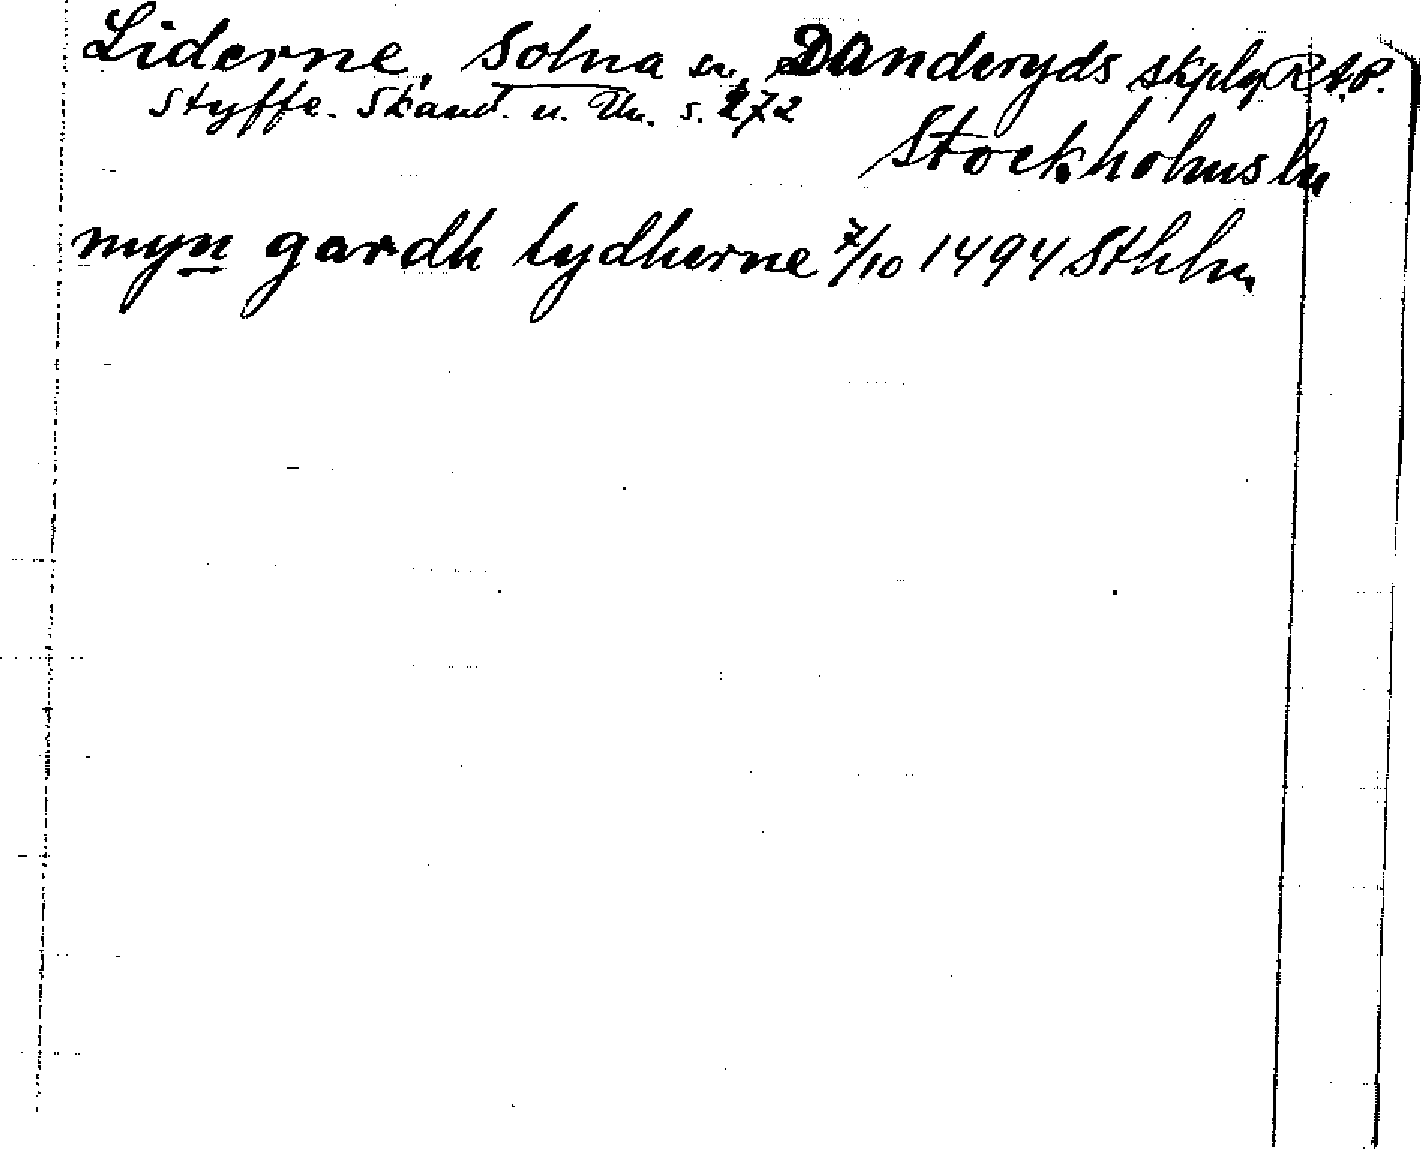 Liderne, Solna sn, Danderyds skplg RAP.
Styffe. Skand. u. Un. s. 272
Stockholms ln
myn gardh lydherne 7/10 1494 Sthlm